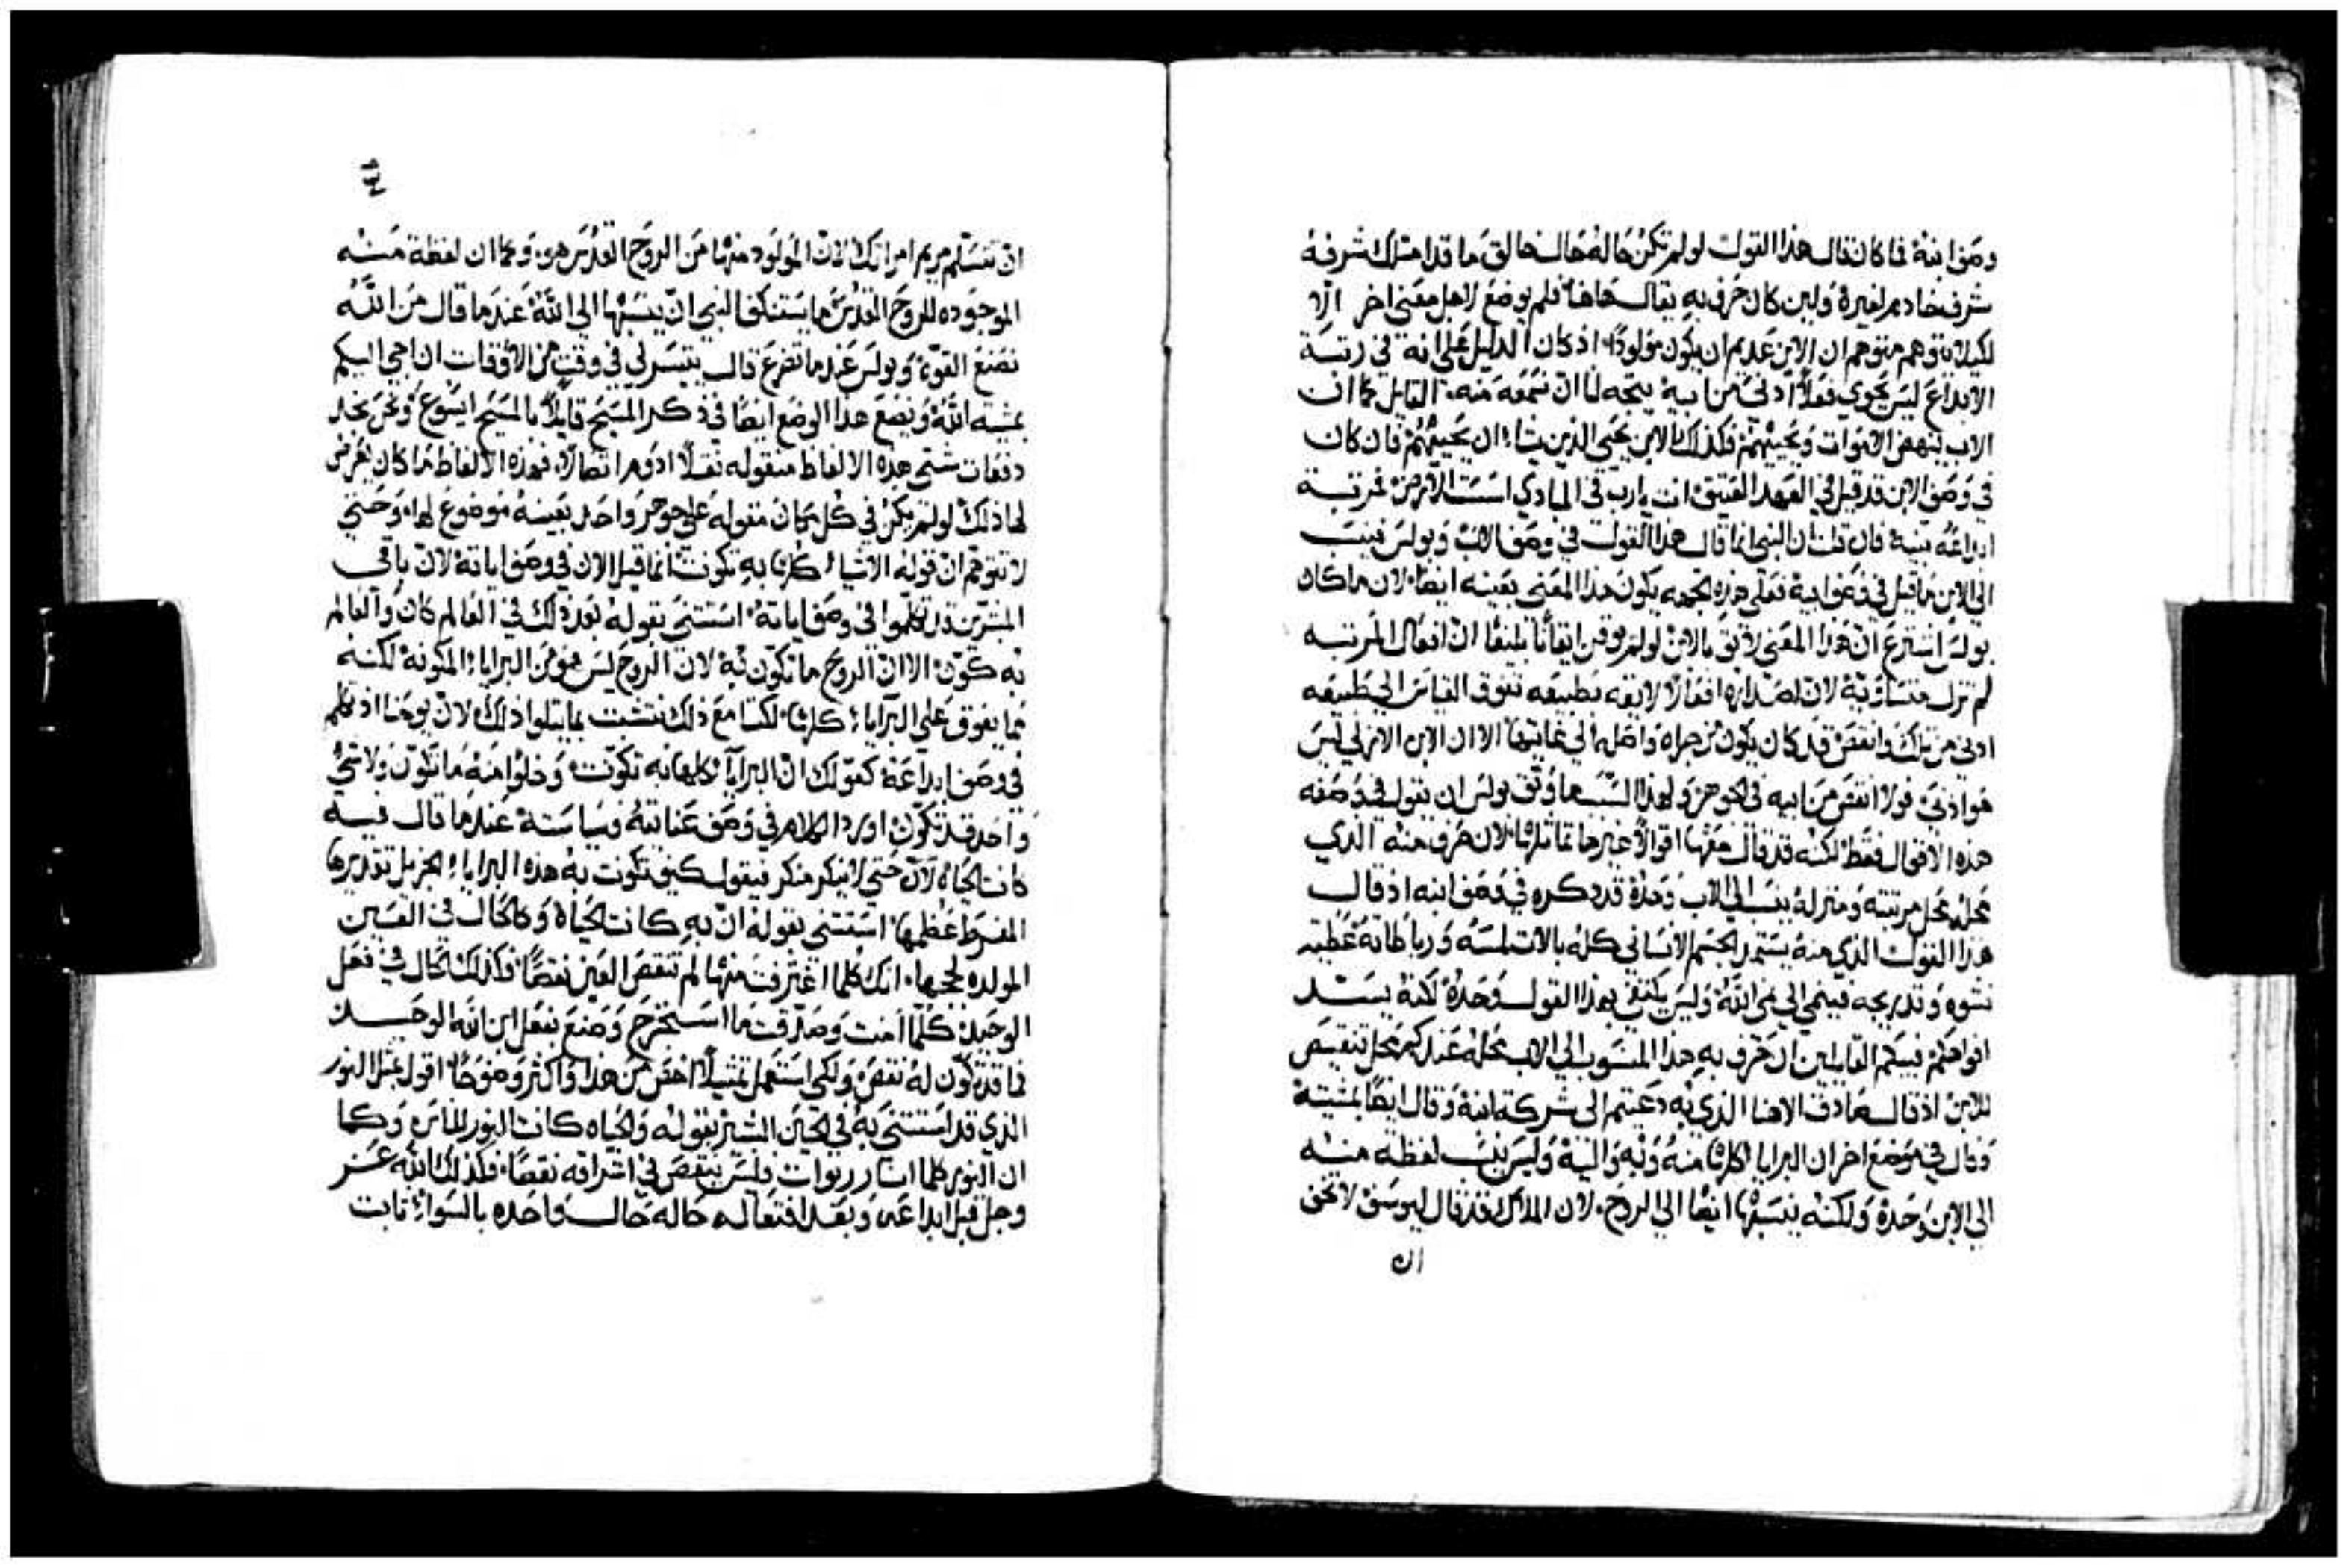 وصف ابنه فما كان قال هذا القول لو لم تكن حاله حال خالق ما قد امتلك شرفه
شرف خادم لغيره ولين كان حرف به يقال هاهنا فلم يوضع لاجل معنى اخر الا
لكيلا يتوهم متوهم ان الابن عديم ان يكون مولودًا اذ كان الدليل على انه في رتبة
الابداع ليس يحوي فعلًا ادنى من ابيه يتجه لنا ان نسمعه منه القايل كما ان
الاب ينهض الاموات ويحييهم فكذلك الابن يحيي الذين يشاء ان يحييهم فان كان
في وصف الابن قد قيل في العهد العتيق انت يارب في المبادي اسست الارض فمرتبة
ابداعه بينه فان قلت ان النبي انما قال هذا القول في وصف الاب وبولس فنسب
الى الابن ما قيل في وصف ابيه فعلى هذه الجهه يكون هذا المعنى بعينه ايضًا لان ما كان
بولس اشترع ان هذا المعنى لايق بالابن لو لم يوقن ايقانًا بليغًا ان افعال المرتبه
لم تزل متساويه لان اصداره افعالًا لايقه بطبيعه تفوق القياس الى طبيعه
ادنى من تلك وانقص قد كان يكون من جراه واصله الى غايتها الا ان الابن الازلي ليس
هو ادنى ولا انقص من ابيه في الجوهر ولهذا السبب ما وثق بولس ان نقول في وصفه
هذه الاقوال فقط لكنه قد قال معها اقوالًا غيرها تماثلها لان حرف منه الذي
تحله محل مرتبته ومنزله ينسب الى الاب وحده قد ذكره في وصف ابنه اذ قال
هذا القول الذي منه يستمد الجسم الانساني كله بالات لمسه ورباطاته عطيه
نشوه وتدريجه فينمي الى نمي الله وليس يكتفي بهذا القول وحده لكنه يسد
افواهكم فيبكم القايلين ان حرف به هذا المنسوب الى الاب محله عندكم محل تنقيص
للابن اذ قال صادق الاهنا الذي به دعيتم الى شركة ابنه وقال ايضًا بمشيته
وقال في موضع اخر ان البرايا كلها منه وبه واليه وليس ينسب لفظه منه
الى الابن وحده ولكنه ينسبها ايضًا الى الروح لان الملاك قد قال ليوسف لا تخف
ان
ان تتسلم مريم امراتك لان المولود منها من الروح القدس هو وكما ان لفظة منه
الموجوده للروح القدس ما يستنكف النبي ان ينسبها الى الله عندما قال من الله
نصنع القوة وبولس عندما تضرع قال يتيسر لي في وقت من الاوقات ان اجي اليكم
بمشية الله ونضع هذا الوضع ايضًا في ذكر المسيح قايلًا بالمسيح ايسوع ونحن نجد
دفعات شتى هذه الالفاظ منقوله نقلًا ادوم اتصالًا فهذه الالفاظ ما كان يعرض
لها ذلك لو لم يكن في كل مكان مقوله على جوهر واحد بعينه موضوع لها وحتى
لا تتوهم ان قوله الاشياء كلها به تكونت انما قيل الان في وصف اياته لان باقي
المبشرين قد تكلموا في وصف اياته استثنى بقوله بعد ذلك في العالم كان والعالم
به كون الا ان الروح ما تكون به لان الروح ليس هو من البرايا المكونه لكنه
مما يفوق على البرايا كلها لكننا مع ذلك نتشبث بما يتلوا ذلك لان يوحنا اذ تكلم
في وصف ابداعه كقولك ان البرايا كلها به تكونت وخلوا منه ما تكون ولا شي
واحد قد تكون اورد الكلام في وصف عنايته وسياسته عندما قال فيه
كانت الحياه لان حتى لا ينكر منكر فيقول كيف تكونت به هذه البرايا الجزيل تقديرها
المفرط عظمها استثنى بقوله ان به كانت الحياة وكالحال في العين
المولده لججها انك كلما اغترفت منها لم تنقص العين نقصًا فكذلك الحال في فعل
الوحيد كلما امنت وصدقت ما استخرج وصنع بفعل ابن الله الوحيد
فما قد تكون له نقص ولكي استعمل تمثيلًا اخص من هذا واكثر وضوحًا اقول بمثل النور
الذي قد استثنى به في الحين البشير بقوله والحياه كانت النور للناس وكما
ان النور كلما انار ربوات فليس ينقص في اشراقه نقصًا فكذلك الله عز
وجل قبل ابداعه وبعد افتعاله حاله حال واحده بالسواء ثابت